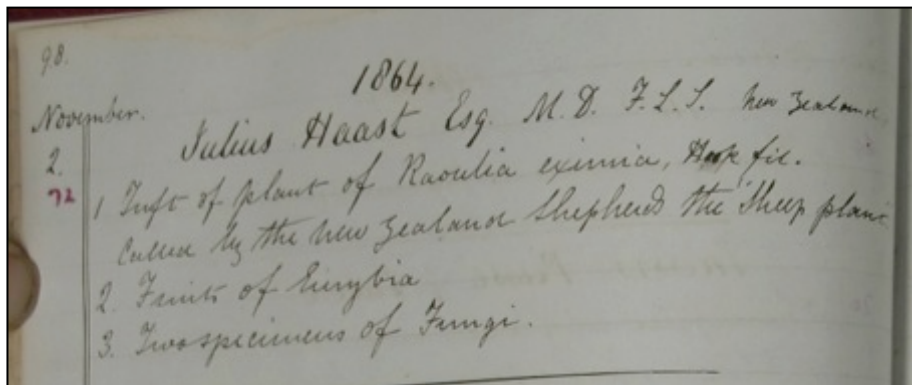 98.
1864.
November.
Julius Haast Esq. M.D. F.L.S. New Zealand
2.
72
1 Tuft of plant of Raoulia eximia, Hook fil.
Called by the New Zealand Shepherds the Sheep plant
2. Fruits of Eurybia
3. Two specimens of Fungi.